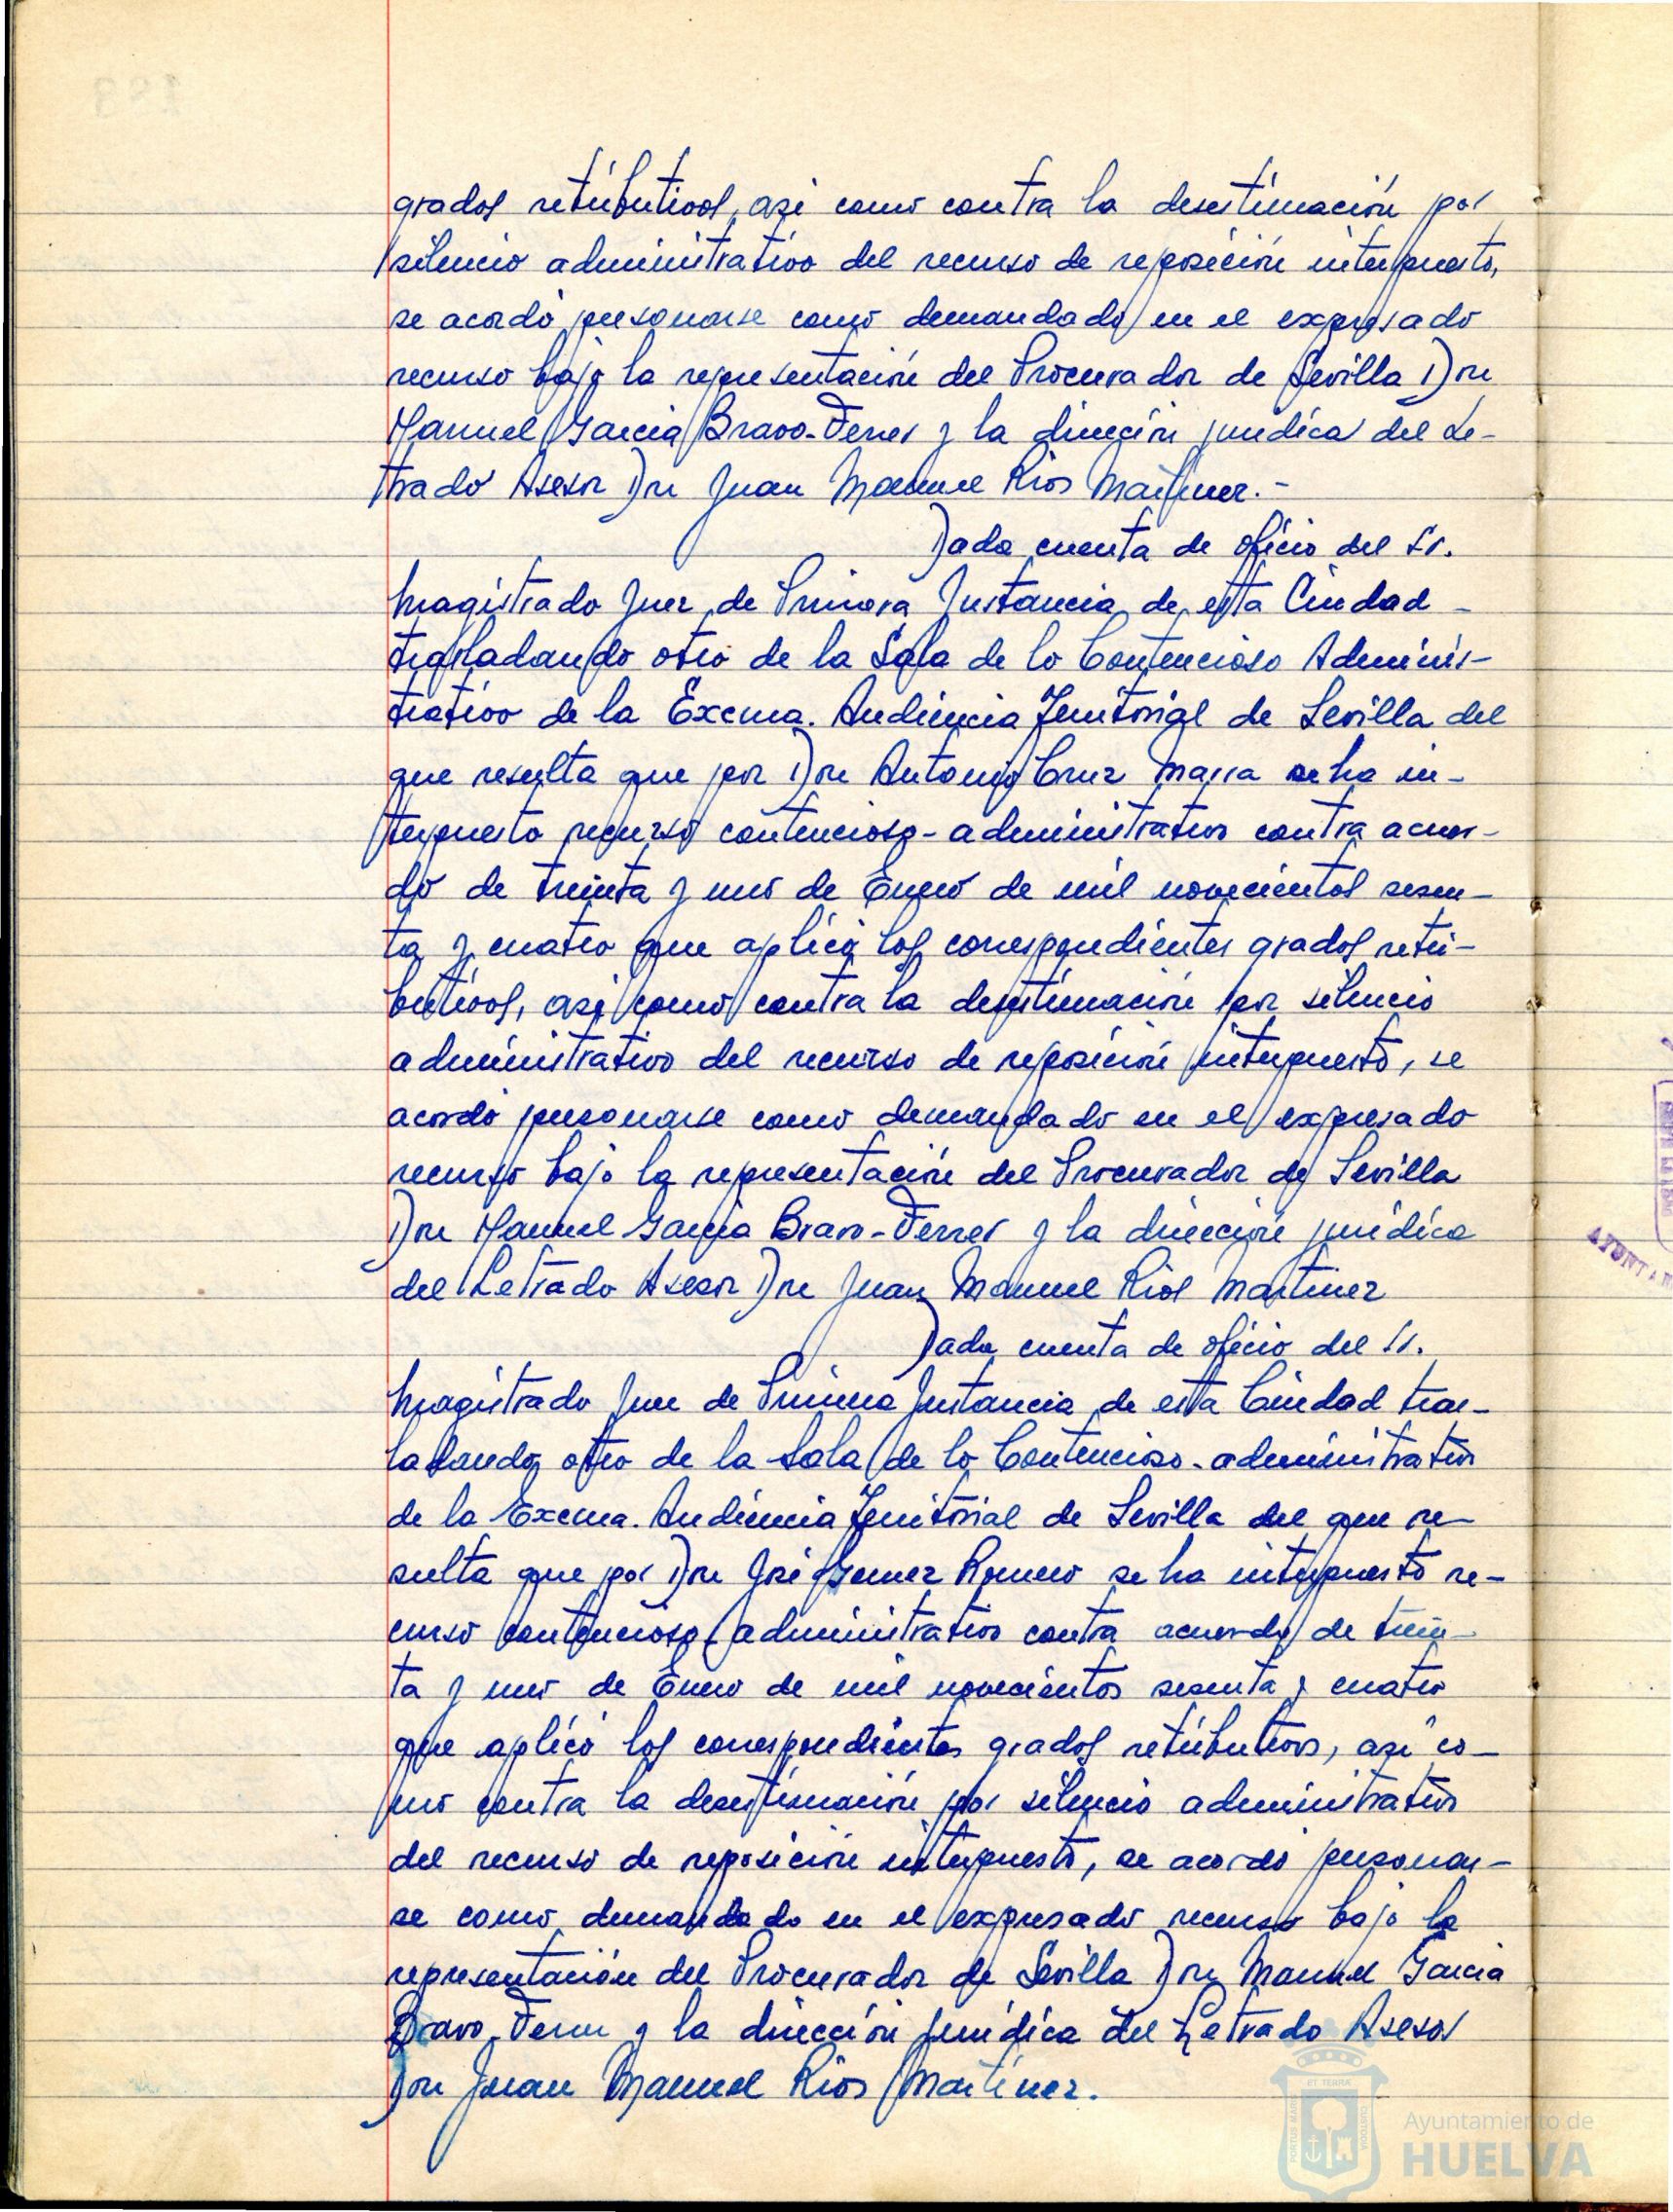 grados retributivos, asi como contra la desestimación por
silencio administrativo del recurso de reposición interpuesto,
se acordó personarse como demandado en el expresado
recurso bajo la representación del Procurador de Sevilla Don
Manuel Garcia Bravo-Ferrer y la dirección juridica del Le-
trado Asesor Don Juan Manuel Rios Martinez.-
Dada cuenta de oficio del Sr.
Magistrado Juez de Primera Instancia de esta Ciudad -
trasladando otro de la Sala de lo Contencioso Adminis-
trativo de la Excma. Audiencia Territorial de Sevilla del
que resulta que por Don Antonio Cruz se ha in-
terpuesto recurso contencioso-administrativo contra acuer-
do de treinta y uno de Enero de mil novecientos sesen-
ta y cuatro que aplicó los correspondientes grados retri-
butivos, asi como contra la desestimación por silencio
administrativo del recurso de reposición interpuesto, se
acordó personarse como demandado en el expresado
recurso bajo la representación del Procurador de Sevilla
Don Manuel Garcia Bravo-Ferrer y la dirección juridica
del Letrado Asesor Don Juan Manuel Rios Martinez
Dada cuenta de oficio del Sr.
Magistrado Juez de Primera Instancia de esta Ciudad tras-
ladando otro de la Sala de lo Contencioso-administrativo
de la Excma. Audiencia Territorial de Sevilla del que re-
sulta que por Don José Gomez Romero se ha interpuesto re-
curso contencioso-administrativo contra acuerdo de trein-
ta y uno de Enero de mil novecientos sesenta y cuatro
que aplicó los correspondientes grados retributivos, asi co-
mo contra la desestimación por silencio administrativo
del recurso de reposición interpuesto, se acordó personar-
se como demandado en el expresado recurso bajo la
representación del Procurador de Sevilla Don Manuel Garcia
Bravo-Ferrer y la dirección juridica del Letrado Asesor
Don Juan Manuel Rios Martinez.
Ayuntamiento de
HUELVA